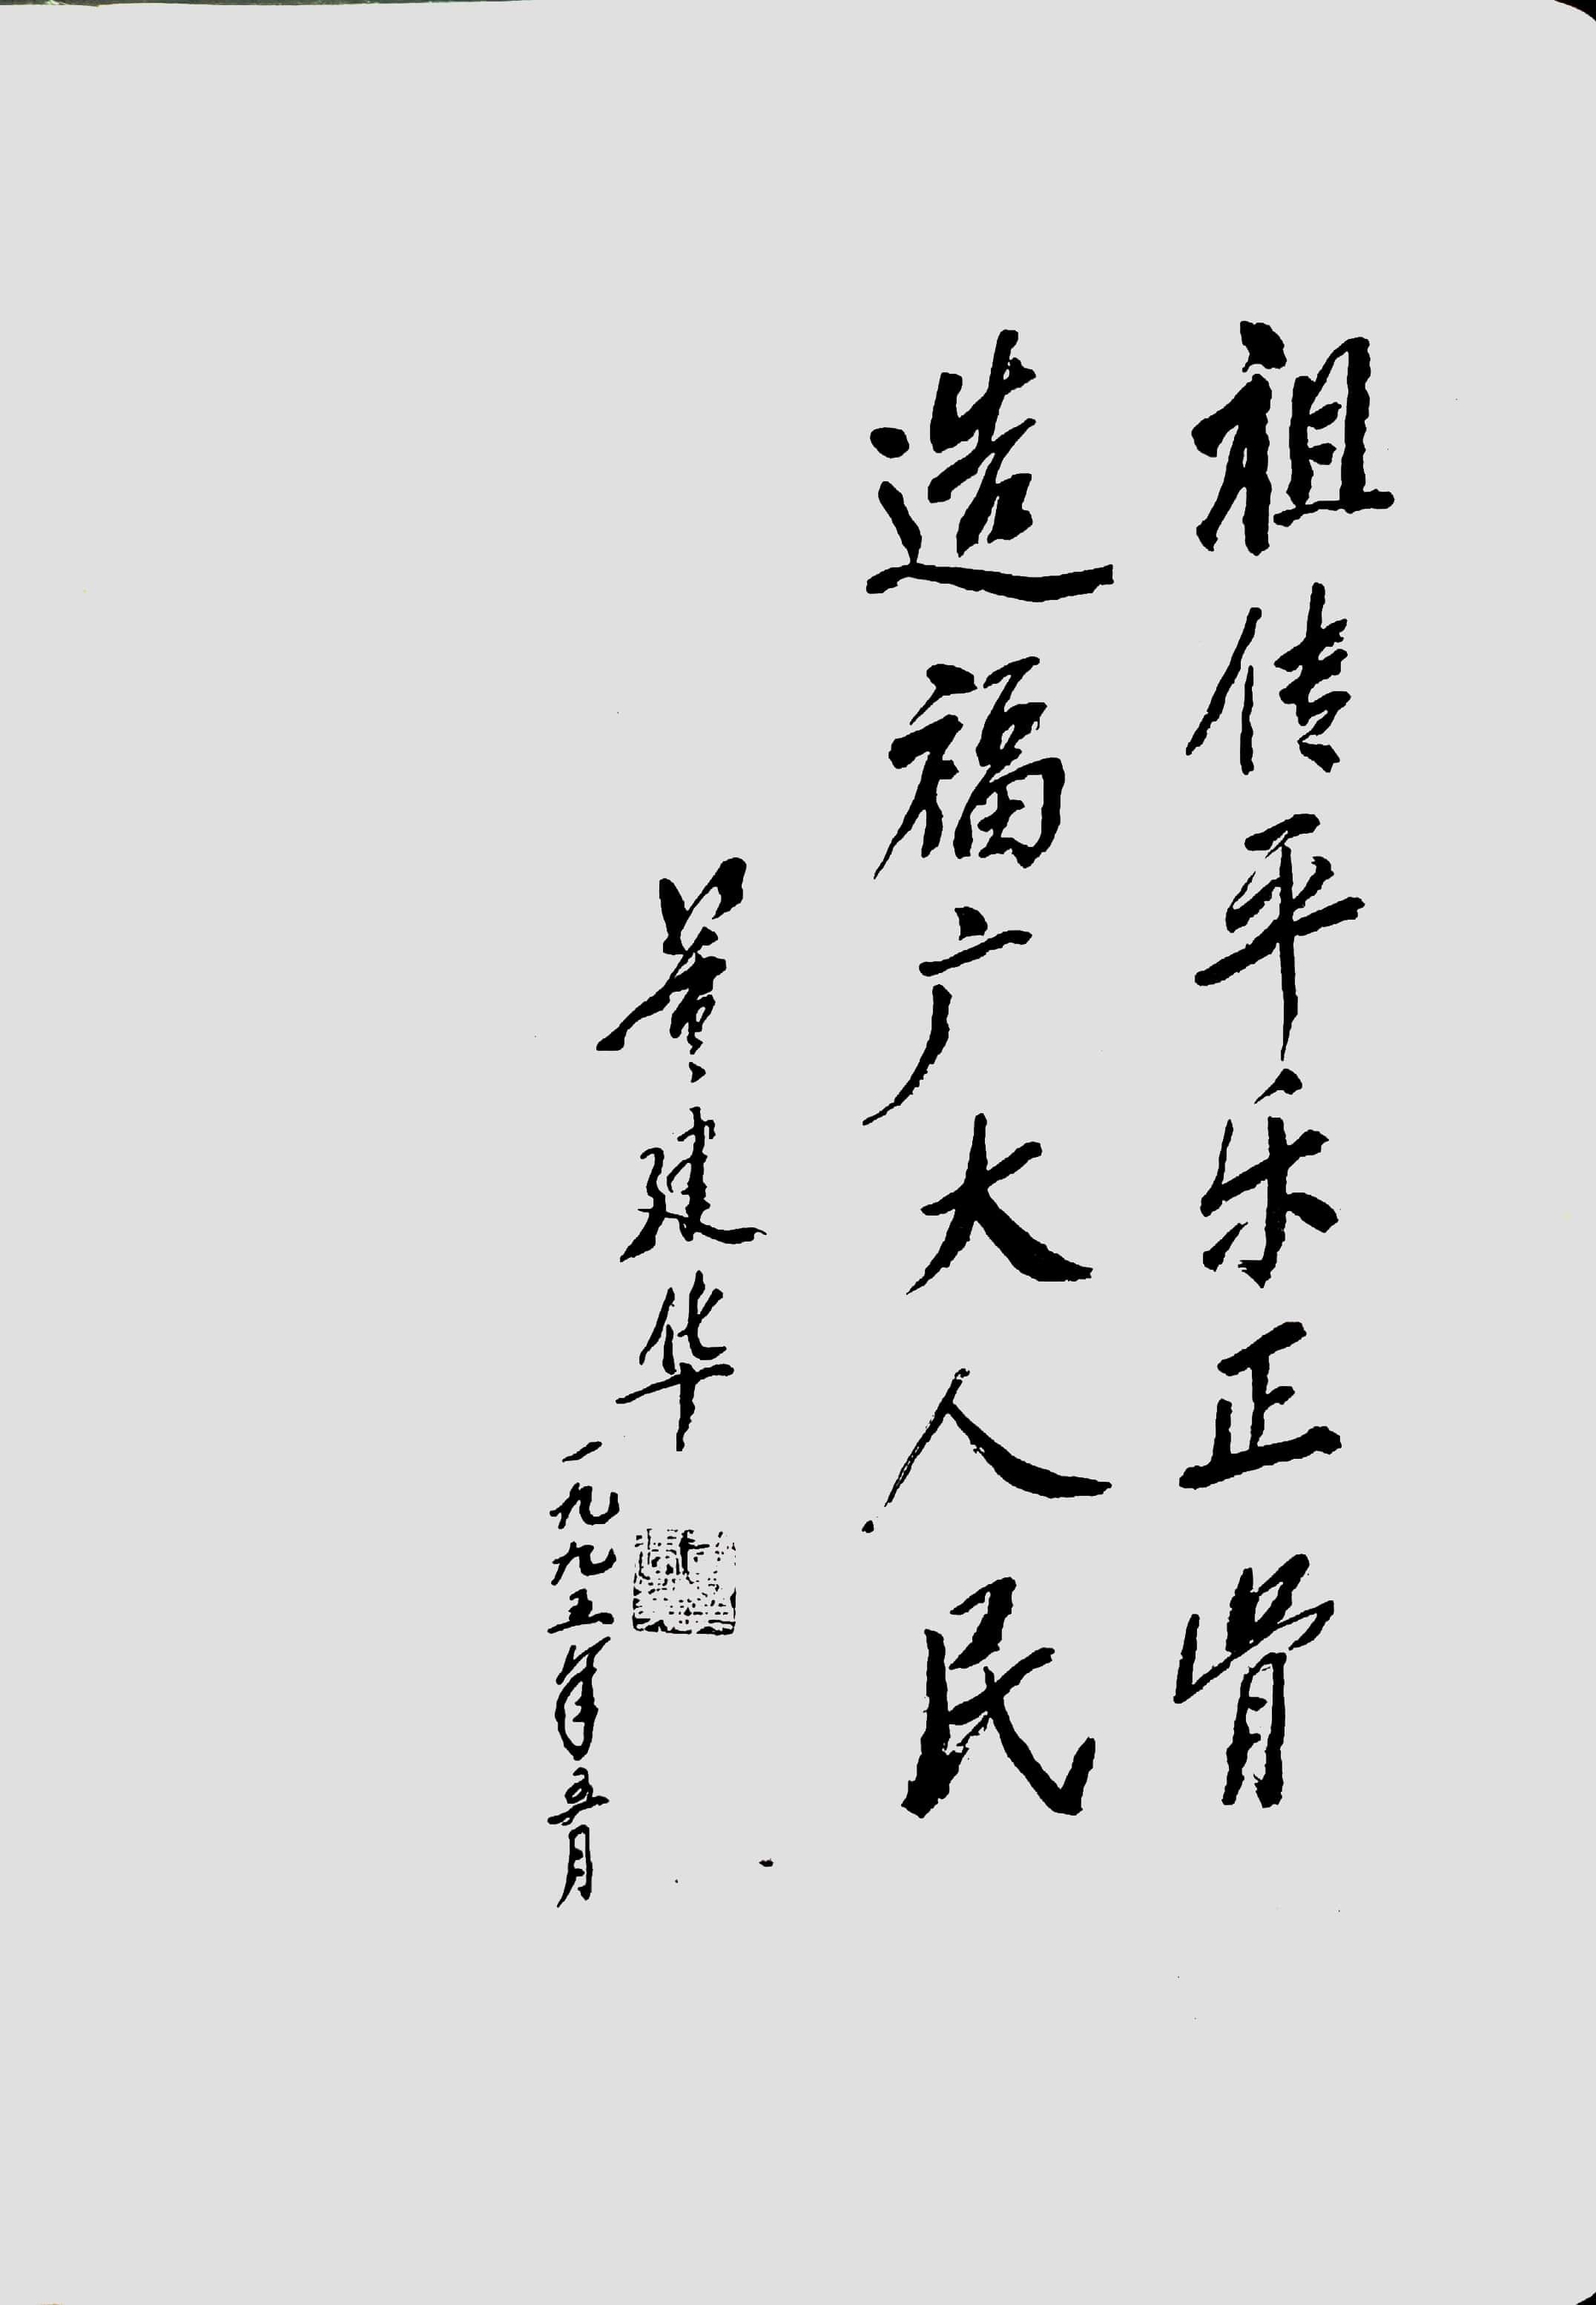 祖传平乐正骨
造福广大人民
董建华
一九九五年五月